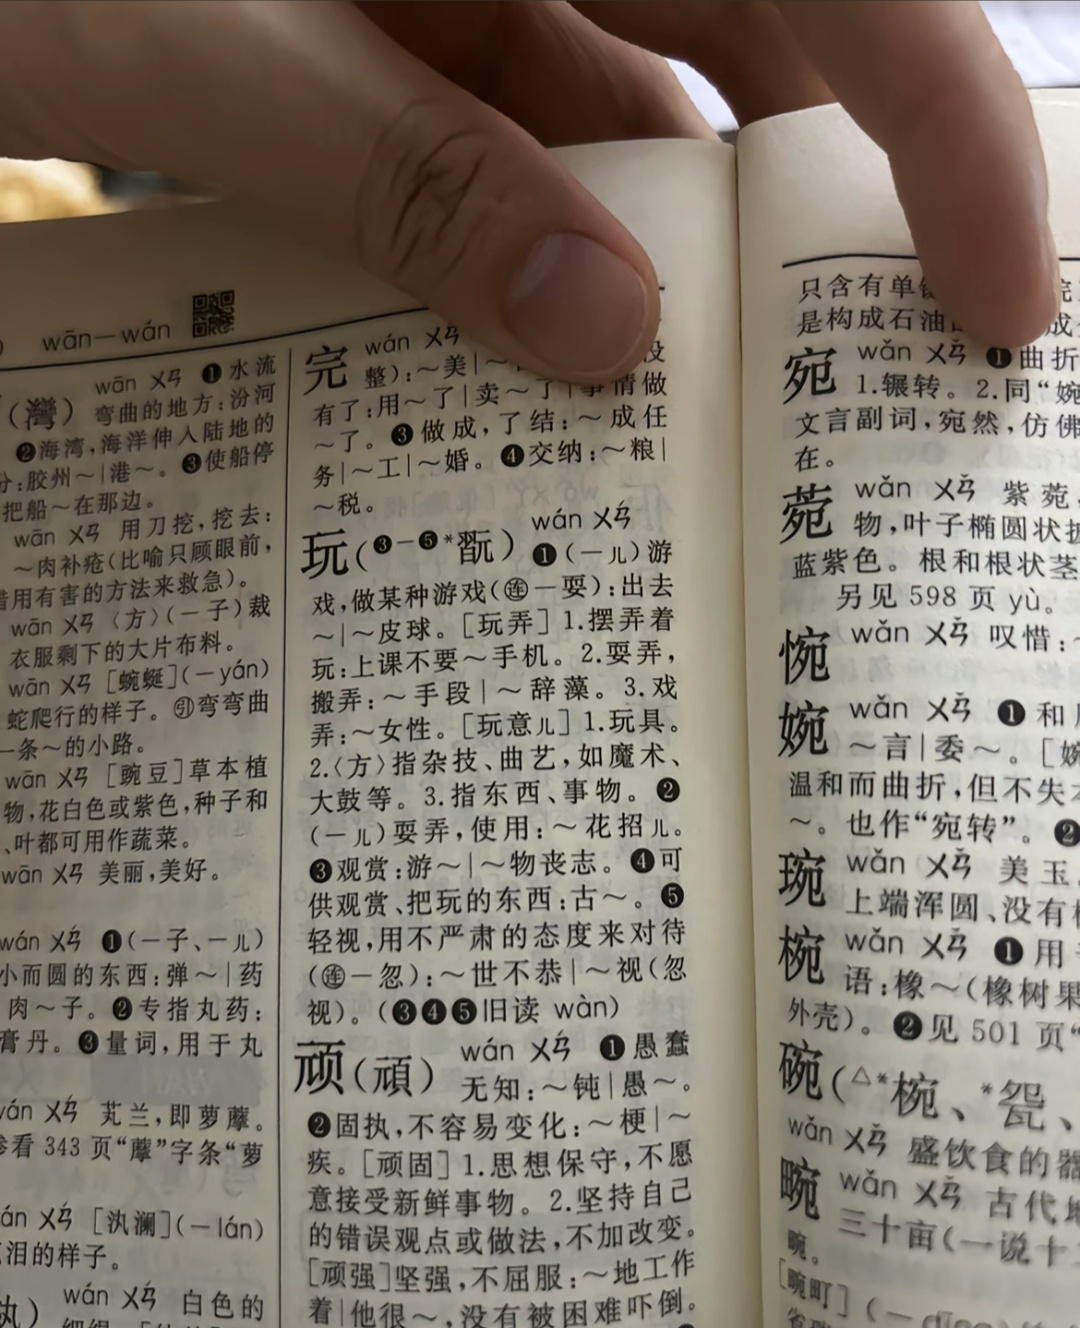 wān—wán
(灣) wān ㄨㄢ ❶水流
弯曲的地方:汾河
❷海湾,海洋伸入陆地的
分:胶州～|港～。❸使船停
把船～在那边。
wān ㄨㄢ 用刀挖,挖去:
～肉补疮(比喻只顾眼前,
用有害的方法来救急)。
wān ㄨㄢ 〈方〉(一子)裁
衣服剩下的大片布料。
wān ㄨㄢ [蜿蜒](－yán)
蛇爬行的样子。㊂弯弯曲
一条～的小路。
wān ㄨㄢ [豌豆]草本植
物,花白色或紫色,种子和
、叶都可用作蔬菜。
wān ㄨㄢ 美丽,美好。
wán ㄨㄢˊ ❶(一子、一儿)
小而圆的东西:弹～|药
肉～子。❷专指丸药:
膏丹。❸量词,用于丸
wán ㄨㄢˊ 芄兰,即萝藦。
参看 343 页“藦”字条“萝
wán ㄨㄢˊ [汍澜](－lán)
泪的样子。
wán ㄨㄢˊ 白色的
完 wán ㄨㄢ
整):～美|～ 没
有了:用～了|卖～了|事情做
～了。❸做成,了结:～成任
务|～工|～婚。❹交纳:～粮|
～税。
玩(❸－❺*翫) wán ㄨㄢˊ
❶(一儿)游
戏,做某种游戏(㊣一耍):出去
～|～皮球。[玩弄] 1.摆弄着
玩:上课不要～手机。2.耍弄,
搬弄:～手段|～辞藻。3.戏
弄:～女性。[玩意儿] 1.玩具。
2.〈方〉指杂技、曲艺,如魔术、
大鼓等。3.指东西、事物。❷
(一儿)耍弄,使用:～花招儿。
❸观赏:游～|～物丧志。❹可
供观赏、把玩的东西:古～。❺
轻视,用不严肃的态度来对待
(㊣一忽):～世不恭|～视(忽
视)。(❸❹❺旧读 wàn)
顽(頑) wán ㄨㄢˊ ❶愚蠢
无知:～钝|愚～。
❷固执,不容易变化:～梗|～
疾。[顽固] 1.思想保守,不愿
意接受新鲜事物。2.坚持自己
的错误观点或做法,不加改变。
[顽强]坚强,不屈服:～地工作
着|他很～,没有被困难吓倒。
只含有单
是构成石油 成
宛 wǎn ㄨㄢˇ ❶曲折
1.辗转。2.同“婉
文言副词,宛然,仿佛
在。
菀 wǎn ㄨㄢˇ 紫菀,
物,叶子椭圆状披
蓝紫色。根和根状茎
另见 598 页 yù。
惋 wǎn ㄨㄢˇ 叹惜:～
婉 wǎn ㄨㄢˇ ❶和
～言|委～。[婉
温和而曲折,但不失
～。也作“宛转”。❷
琬 wǎn ㄨㄢˇ 美玉
上端浑圆、没有
椀 wǎn ㄨㄢˇ ❶用
语:橡～(橡树果
外壳)。❷见 501 页“
碗(△*椀、*盌、
wǎn ㄨㄢˇ 盛饮食的器
畹 wǎn ㄨㄢˇ 古代地
三十亩(一说十
畹。
[畹町]